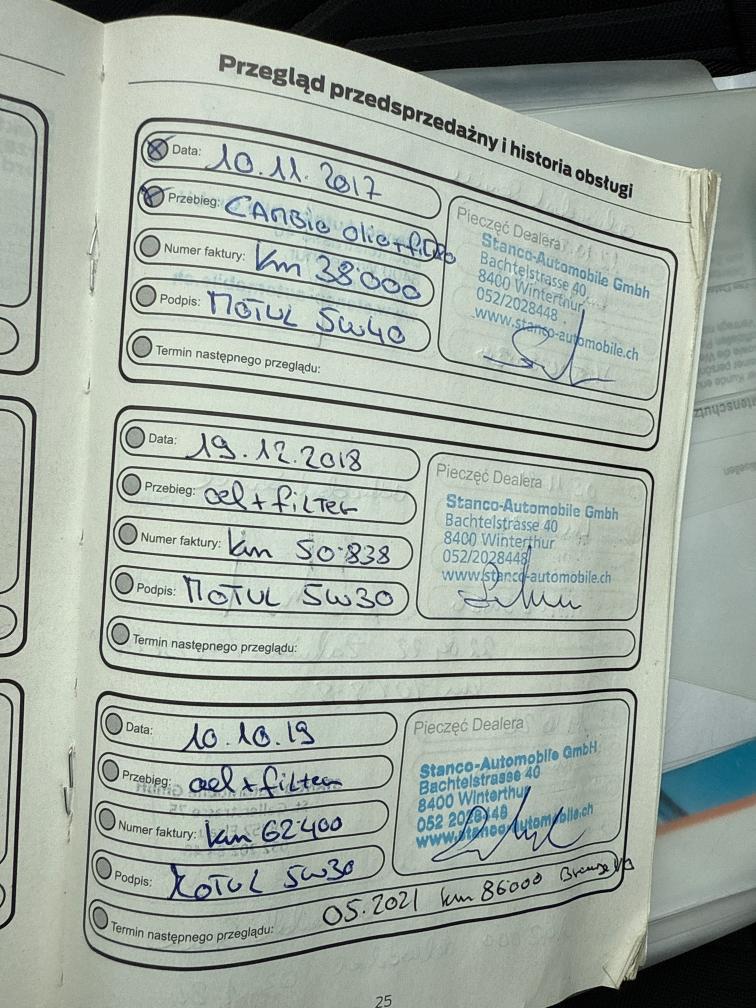 Przegląd przedsprzedażny i historia obsługi
Data: 10.11.2017
Przebieg: CAMBIO olio+filtro
Numer faktury: km 38'000
Podpis: MOTUL 5W40
Termin następnego przeglądu:
Pieczęć Dealera
Stanco-Automobile Gmbh
Bachtelstrasse 40
8400 Winterthur
052/2028448
www.stanco-automobile.ch
Data: 19.12.2018
Przebieg: oel+filter
Numer faktury: km 50'838
Podpis: MOTUL 5W30
Termin następnego przeglądu:
Pieczęć Dealera
Stanco-Automobile Gmbh
Bachtelstrasse 40
8400 Winterthur
052/2028448
www.stanco-automobile.ch
Data: 10.10.19
Przebieg: oel+filter
Numer faktury: km 62'400
Podpis: MOTUL 5W30
Termin następnego przeglądu: 05.2021 km 86000
Pieczęć Dealera
Stanco-Automobile GmbH
Bachtelstrasse 40
8400 Winterthur
052 2028448
www.stanco-automobile.ch
25